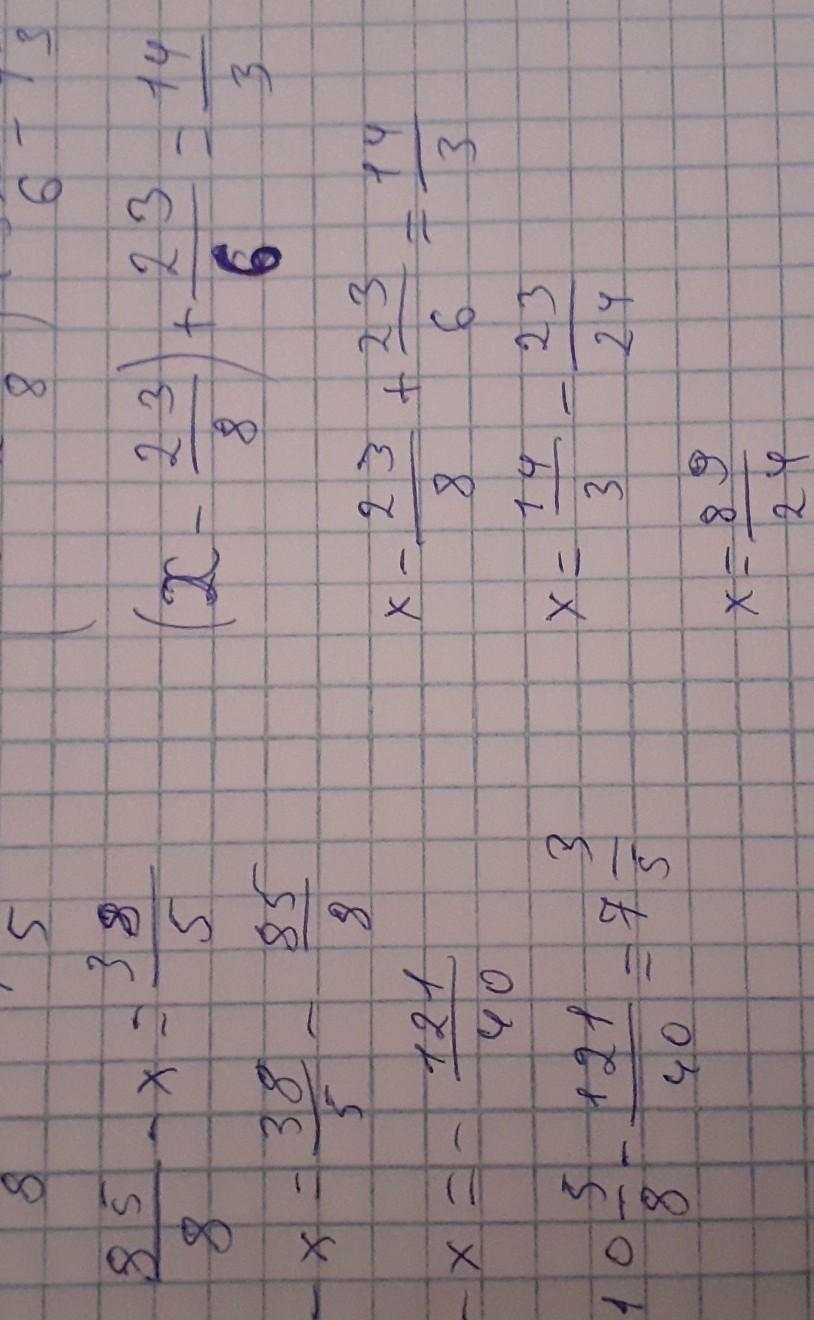 85/8 - x = 38/5
- x = 38/5 - 85/8
- x = - 121/40
10 5/8 - 121/40 = 7 3/5
(x - 23/8) + 23/6 = 14/3
x - 23/8 + 23/6 = 14/3
x = 14/3 - 23/24
x = 89/24